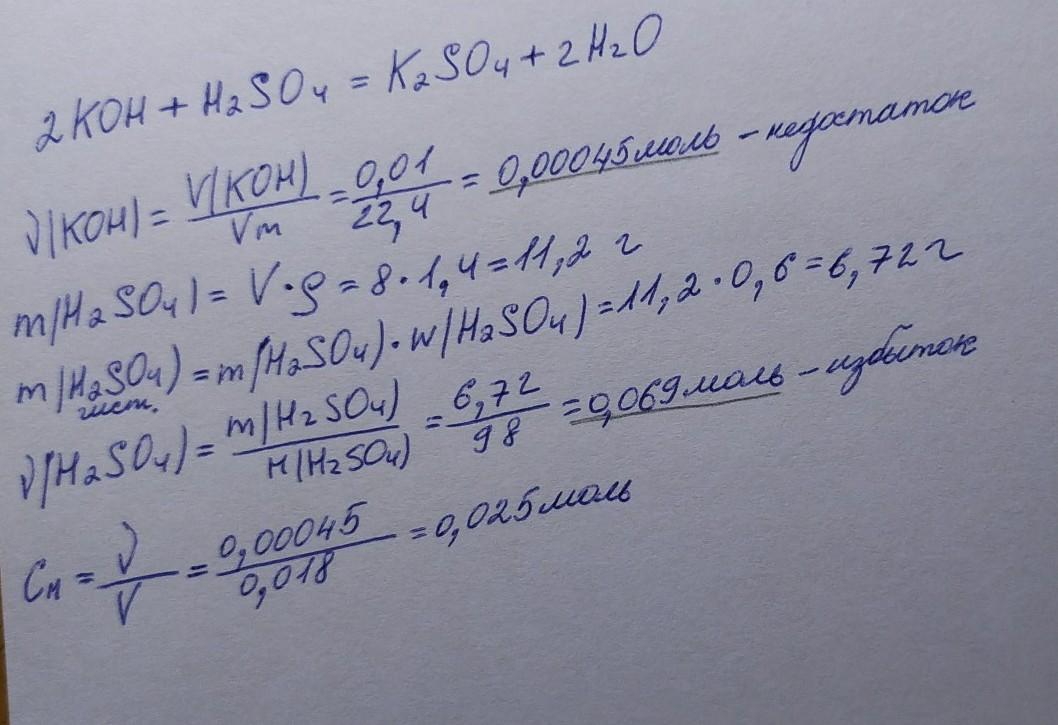 2KOH + H₂SO₄ = K₂SO₄ + 2H₂O
ν(KOH) = V(KOH)/Vm = 0,01/22,4 = 0,00045моль – недостаток
m(H₂SO₄) = V·ρ = 8·1,4 = 11,2 г
m(H₂SO₄)чист. = m(H₂SO₄)·w(H₂SO₄) = 11,2·0,6 = 6,72г
ν(H₂SO₄) = m(H₂SO₄)/M(H₂SO₄) = 6,72/98 = 0,069моль – избыток
Cм = ν/V = 0,00045/0,018 = 0,025моль